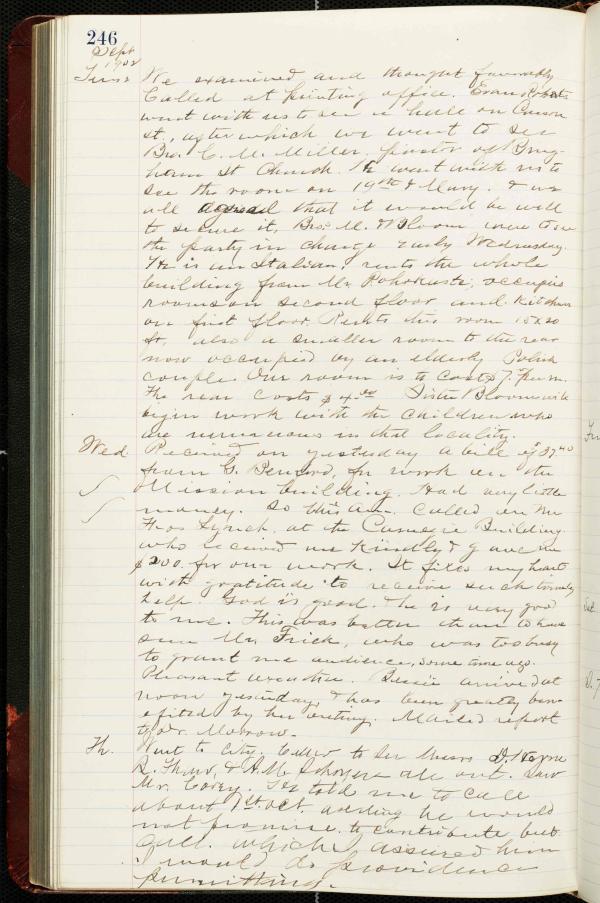 246
Sept
1902
Tues. We examined and thought favorably
Called at printing office. Evan Roberts
went with us to see a hall on Carson
st., after which we went to see
Bro. C. M. Miller, pastor of Bing-
ham St Church. He went with us to
see the room on 19th & Mary. & we
all agreed that it would be well
to secure it. Bro. M. & Bloom were to see
the party in charge early Wednesday.
He is an Italian, rents the whole
building from Mr. occupies
rooms on second floor and kitchen
on first floor. Rents this room 15x20
ft, also a smaller room to the rear
now occupied by an elderly Polish
couple. Our room is to cost $7. per m.
The rear costs $4.00 Sister Bloom will
begin work with the children who
are numerous in that locality.
Wed. Received on yesterday a bill of 37.40
from G. for work on the
Mission building. Had very little
money. So this a.m. called on Mr
Thos Lynch at the Carnegie Building
who received me kindly & gave me
$200. for our work. It fills my heart
with gratitude to receive such timely
help. God is good. & he is very good
to me. This was better than to have
seen Mr. Frick, who was too busy
to grant me audience, some time ago.
Pleasant weather. Bessie arrived at
noon yesterday, & has been greatly ben-
efited by her outing. Mailed report
to Dr. Morrow.
Th. Went to city. Called to see Messrs D.
& A. M. all out. Saw
Mr. Corey. He told me to call
about 1st Oct. adding he would
not promise to contribute but
call. which I assured him
I would do providence
permitting.